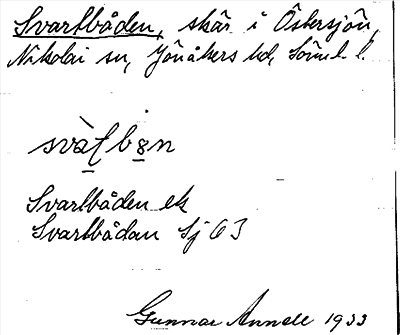 Svartbåden, skär i Östersjön,
Nikolai sn, Jönåkers hd, Söml. l.
svàʈbɞn
Svartbåden ek
Svartbådan Sj 63
Gunnar Annell 1933